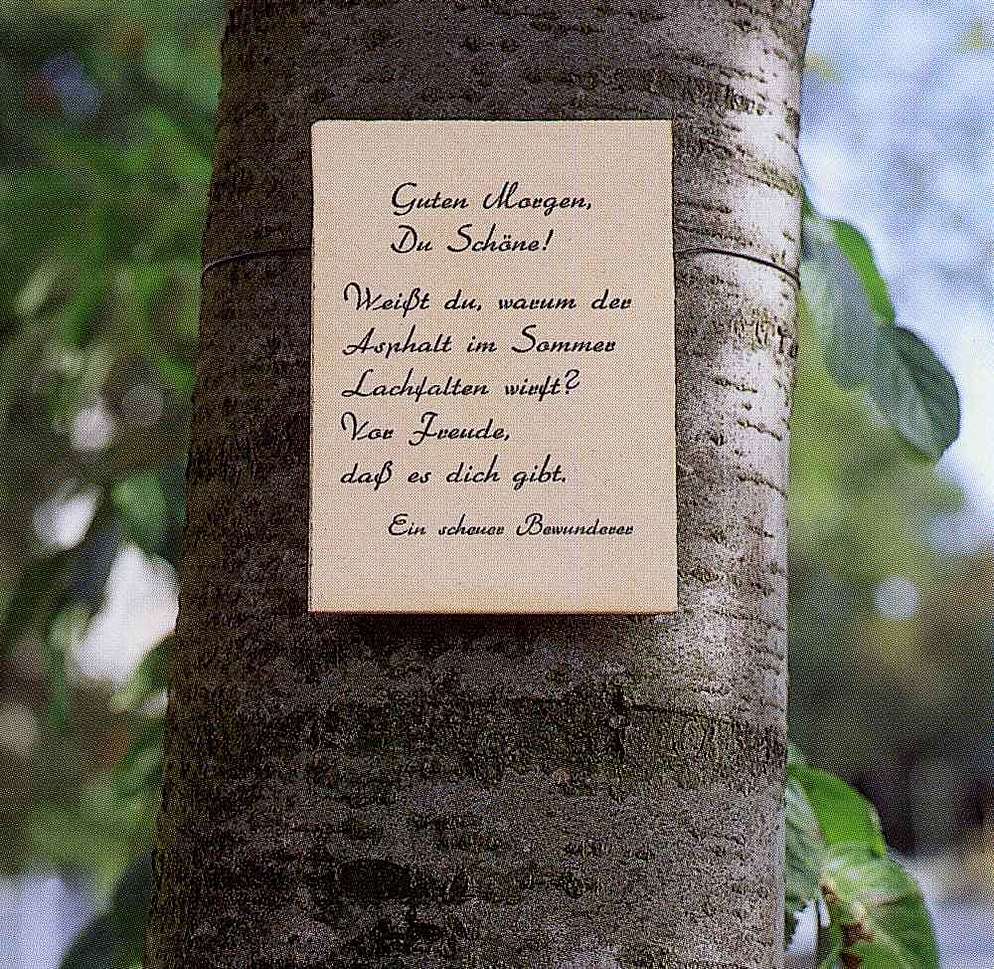 Guten Morgen,
Du Schöne!
Weißt du, warum der
Asphalt im Sommer
Lachfalten wirft?
Vor Freude,
daß es dich gibt.
Ein scheuer Bewunderer